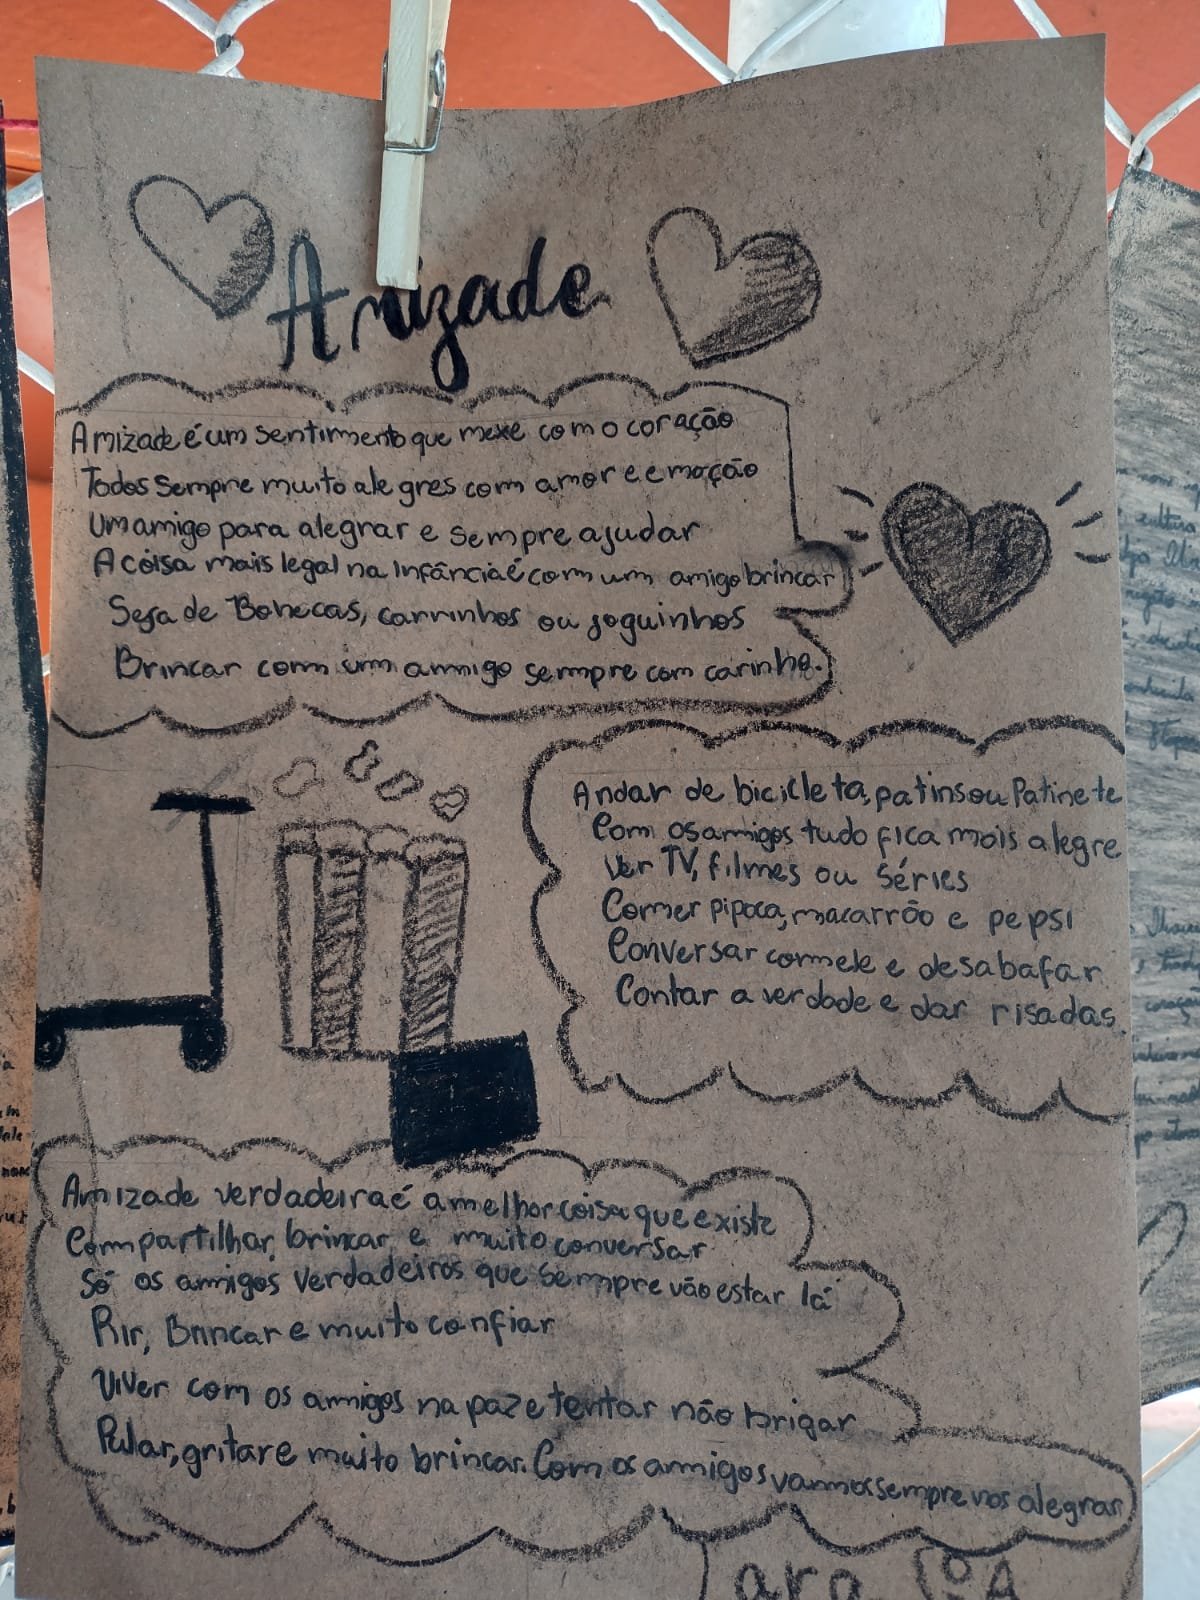 Amizade
Amizade é um sentimento que mexe com o coração
Todos sempre muito alegres com amor e emoção
Um amigo para alegrar e sempre ajudar
A coisa mais legal na infância é com um amigo brincar
Seja de Bonecas, carrinhos ou joguinhos
Brincar com um amigo sempre com carinho.
Andar de bicicleta, patins ou Patinete
Com os amigos tudo fica mais alegre
Ver TV, filmes ou séries
Comer pipoca, macarrão e pepsi
Conversar com ele e desabafar
Contar a verdade e dar risadas.
Amizade verdadeira é a melhor coisa que existe
Compartilhar, brincar e muito conversar
Só os amigos verdadeiros que sempre vão estar lá
Rir, Brincar e muito confiar
Viver com os amigos na paz e tentar não brigar
Pular, gritar e muito brincar. Com os amigos vamos sempre nos alegrar